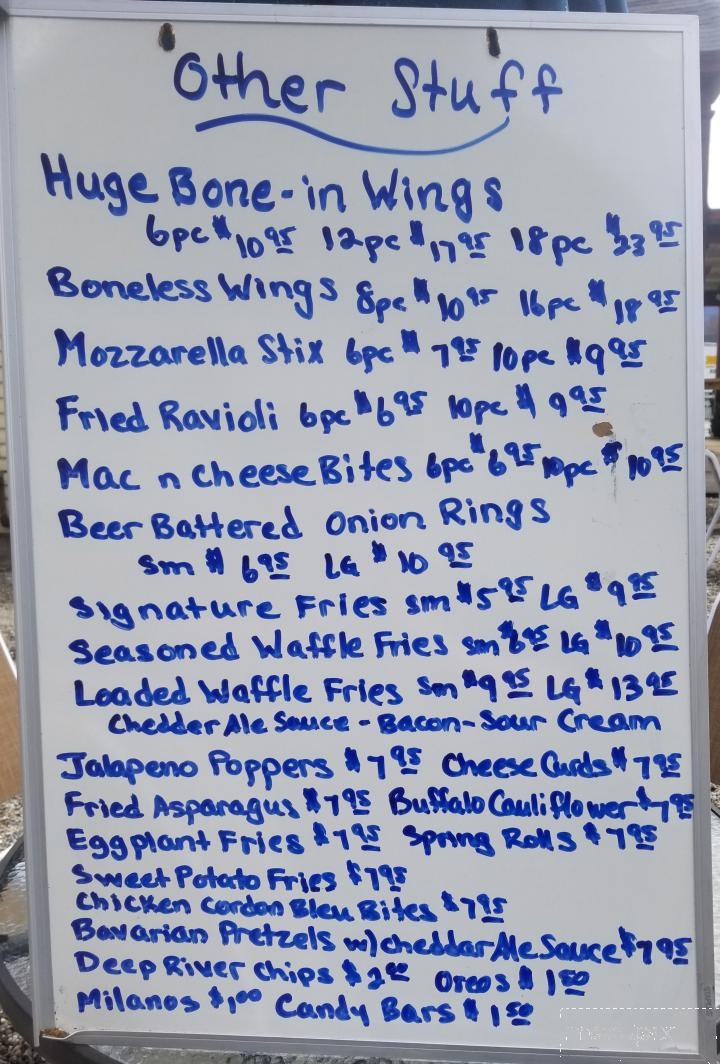 Other Stuff
Huge Bone-in Wings
6pc $10.95 12pc $17.95 18pc $23.95
Boneless Wings 8pc $10.95 16pc $18.95
Mozzarella Stix 6pc $7.95 10pc $9.95
Fried Ravioli 6pc $6.95 10pc $9.95
Mac n cheese Bites 6pc $6.95 10pc $10.95
Beer Battered Onion Rings
Sm $6.95 LG $10.95
Signature Fries sm $5.95 LG $9.95
Seasoned Waffle Fries sm $6.95 LG $10.95
Loaded Waffle Fries Sm $9.95 LG $13.95
Chedder Ale Sauce - Bacon - Sour Cream
Jalapeno Poppers $7.95 Cheese Curds $7.95
Fried Asparagus $7.95 Buffalo Cauliflower $7.95
Eggplant Fries $7.95 Spring Rolls $7.95
Sweet Potato Fries $7.95
Chicken Cordon Bleu Bites $7.95
Bavarian Pretzels w/cheddar Ale Sauce $7.95
Deep River Chips $2.00 Oreos $1.50
Milanos $1.00 Candy Bars $1.50